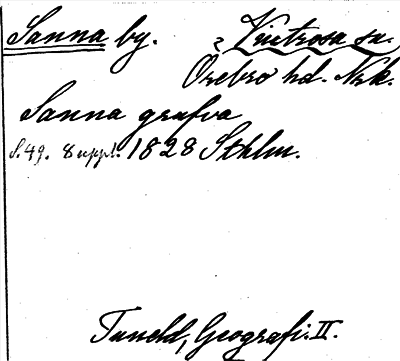 Sanna by. ? Vintrosa sn.
Örebro hd. Nrk.
Sanna grufva
S. 49. 8 uppl. 1828 Sthlm.
Tuneld, Geografi. II.